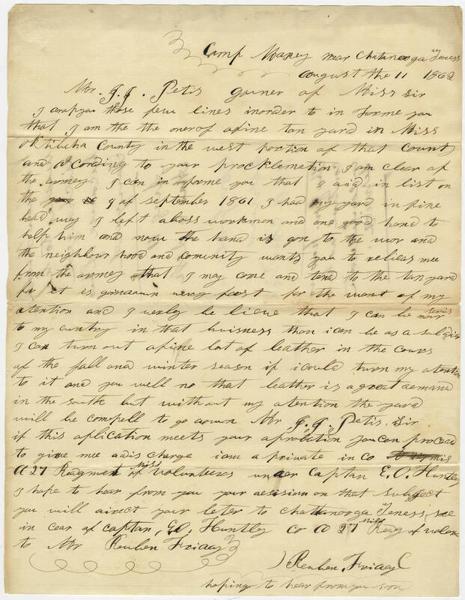 Camp Maxey near Chatanooga Teness
august the 11 1862
Mr. J. J. Petis govner of Miss Sir
I drop you these few lines inorder to in forme you
that I am the the oner of a fine tan yard in Miss
oktibeha County in the west portion of that County
and acording to your procklemation I am clear of
the armey I can in forme you that I did in list on
the 9 of september 1861 I had my yard in fine
head way I left a boss workman and one good hand to
help him and now the hand is gon to the wor and
the neighbour hood and comunity wants you to relieas me
from the armey that I may come and tend to the tan yard
for it is going down verry fast for the want of my
atention and I verley be lieve that I can be more servis
to my cuntry in that buisness than i can be as a soldier
I can turn out a fine lot of leather in the cours
of the fall and winter season if i could turn my atention
to it and you well no that leather is a great demand
in the south but with out my atention the yard
will be compell to go down Mr. J. J. Petis. Sir
if this aplication meets your aprobation you can proceed
to give mee a dis charge i am a private in co
A 27 Ragment of Miss volunteers under Captan E. O. Huntley
I hope to hear from you your decision on that subject
you will direct your letter to Chattanooga Teness, see
in car of captan, E. O, Huntley Co A 27 Miss Reg of volen
to Mr Reuben Friday
Reuben Friday
hoping to hear from you soon